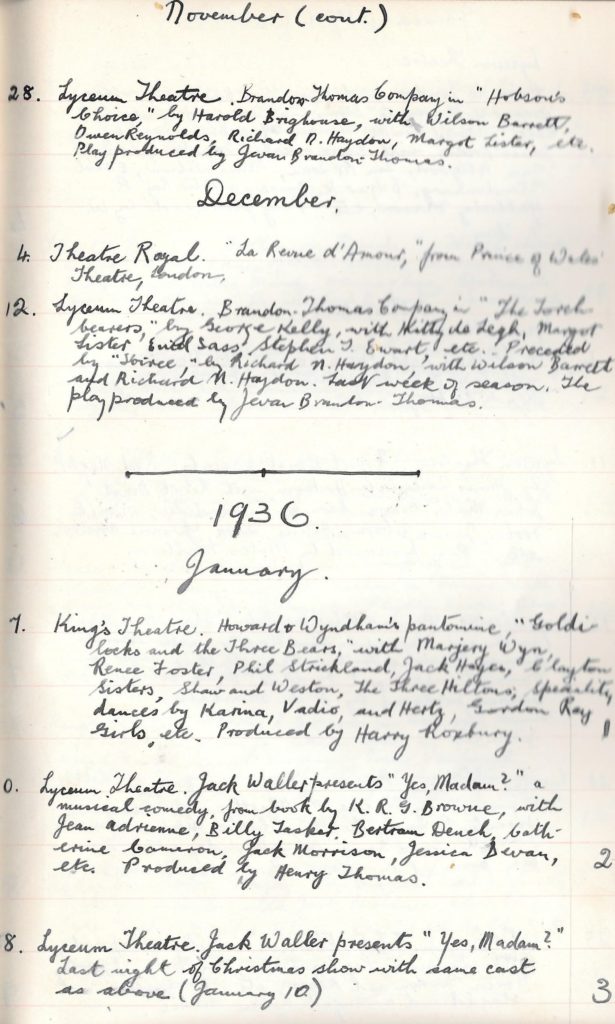 November (cont.)
28. Lyceum Theatre. Brandon-Thomas Company in "Hobson's
Choice," by Harold Brighouse, with Wilson Barrett,
Owen Reynolds, Richard N. Haydon, Margot Lister, etc.
Play produced by Jevan Brandon-Thomas.
December.
4. Theatre Royal. "La Revue d'Amour," from Prince of Wales'
Theatre, London.
12. Lyceum Theatre. Brandon-Thomas Company in "The Torch-
bearers," by George Kelly, with Hetty de Legh, Margot
Lister, Enid Sass, Stephen T. Ewart, etc. Preceded
by "Soiree," by Richard N. Haydon, with Wilson Barrett
and Richard N. Haydon. Last week of season. The
play produced by Jevan Brandon-Thomas.
1936.
January.
7. King's Theatre. Howard & Wyndham's pantomime, "Goldi-
locks and the Three Bears," with Marjery Wyn,
Renee Foster, Phil Strickland, Jack Hayes, Clayton
Sisters, Shaw and Weston, The Three Hiltons; Speciality
dances by Karina, Vadio, and Hertz, Gordon Ray
Girls, etc. Produced by Harry Roxbury.
1
0. Lyceum Theatre. Jack Waller presents "Yes, Madam?" a
musical comedy, from book by K. R. G. Browne, with
Jean Adrienne, Billy Tasker, Bertram Dench, Cath-
erine Cameron, Jack Morrison, Jessica Devan,
etc. Produced by Henry Thomas.
2
8. Lyceum Theatre. Jack Waller presents "Yes, Madam?"
Last night of Christmas show with same cast
as above (January 10)
3